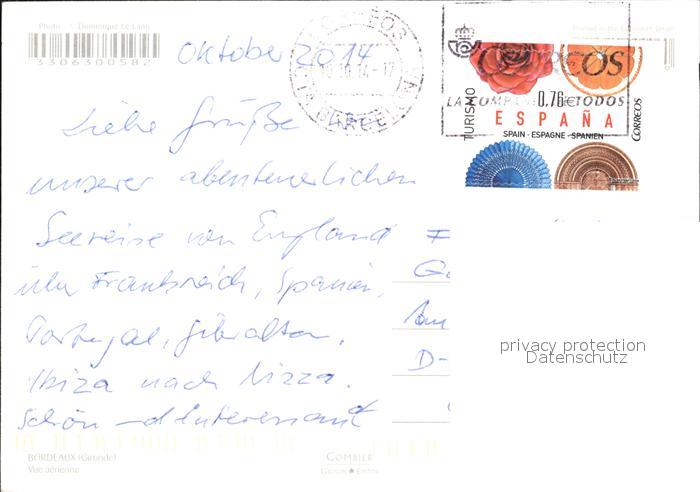 Photo : Dominique Le Lann
Printed in the European Union
3306300582
Oktober 2014
CORREOS
10.10.14-17
BARCELONA
CORREOS
LA COMP DE TODOS
TURISMO
0,76€
ESPAÑA
SPAIN · ESPAGNE · SPANIEN
CORREOS
Liebe Grüße
unserer abenteuerlichen
Seereise von England
über Frankreich, Spanien,
Portugal, Gibraltar,
Ibiza nach Nizza.
Schön und interessant
D-
privacy protection
Datenschutz
BORDEAUX (Gironde)
Vue aérienne
COMBIER